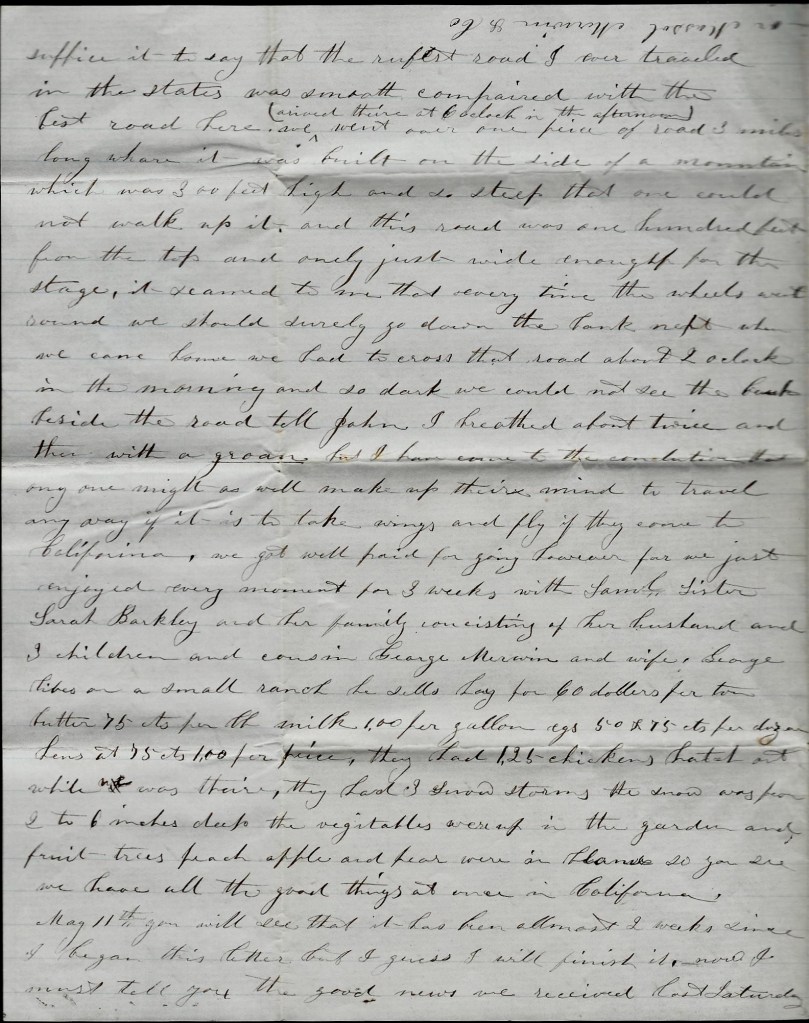 Merwin & Co
suffice it to say that the rufest road I ever traveled
in the states was smooth compaired with the
(arived there at 6 oclock in the afternoon)
best road here. we ^ went over one piece of road 3 miles
long whare it was built on the side of a mountain
which was 300 feet high and so steep that one could
not walk up it. and this road was one hundred feet
from the top and onely just wide enough for the
stage, it seamed to me that every time the wheels went
round we should surely go down the bank next when
we came home we had to cross that road about 2 oclock
in the morning and so dark we could not see the bank
beside the road tell John I breathed about twice and
then with a groan. but I have come to the conclution that
any one might as well make up their mind to travel
any way if it is to take wings and fly if they come to
California, we got well paid for going however for we just
enjoyed every moment for 3 weeks with Sister
Sarah Barkley and her family concisting of her husband and
3 children and cousin George Merwin and wife. George
lives on a small ranch he sells hay for 60 dollers per ton
butter 75 cts per lb milk 1,00 per gallon egs 50 & 75 cts per dozen
hens at 75 cts 1,00 per piece, they had 125 chickens hatch out
while we was theire, they had 3 snow storms the snow was from
2 to 6 inches deep the vegitables were up in the garden and
fruit trees peach apple and pear were in so you see
we have all the good things at once in California.
May 11th you will see that it has ben allmost 2 weeks since
I began this letter but I guess I will finish it. now I
must tell you the good news we received last Saturday